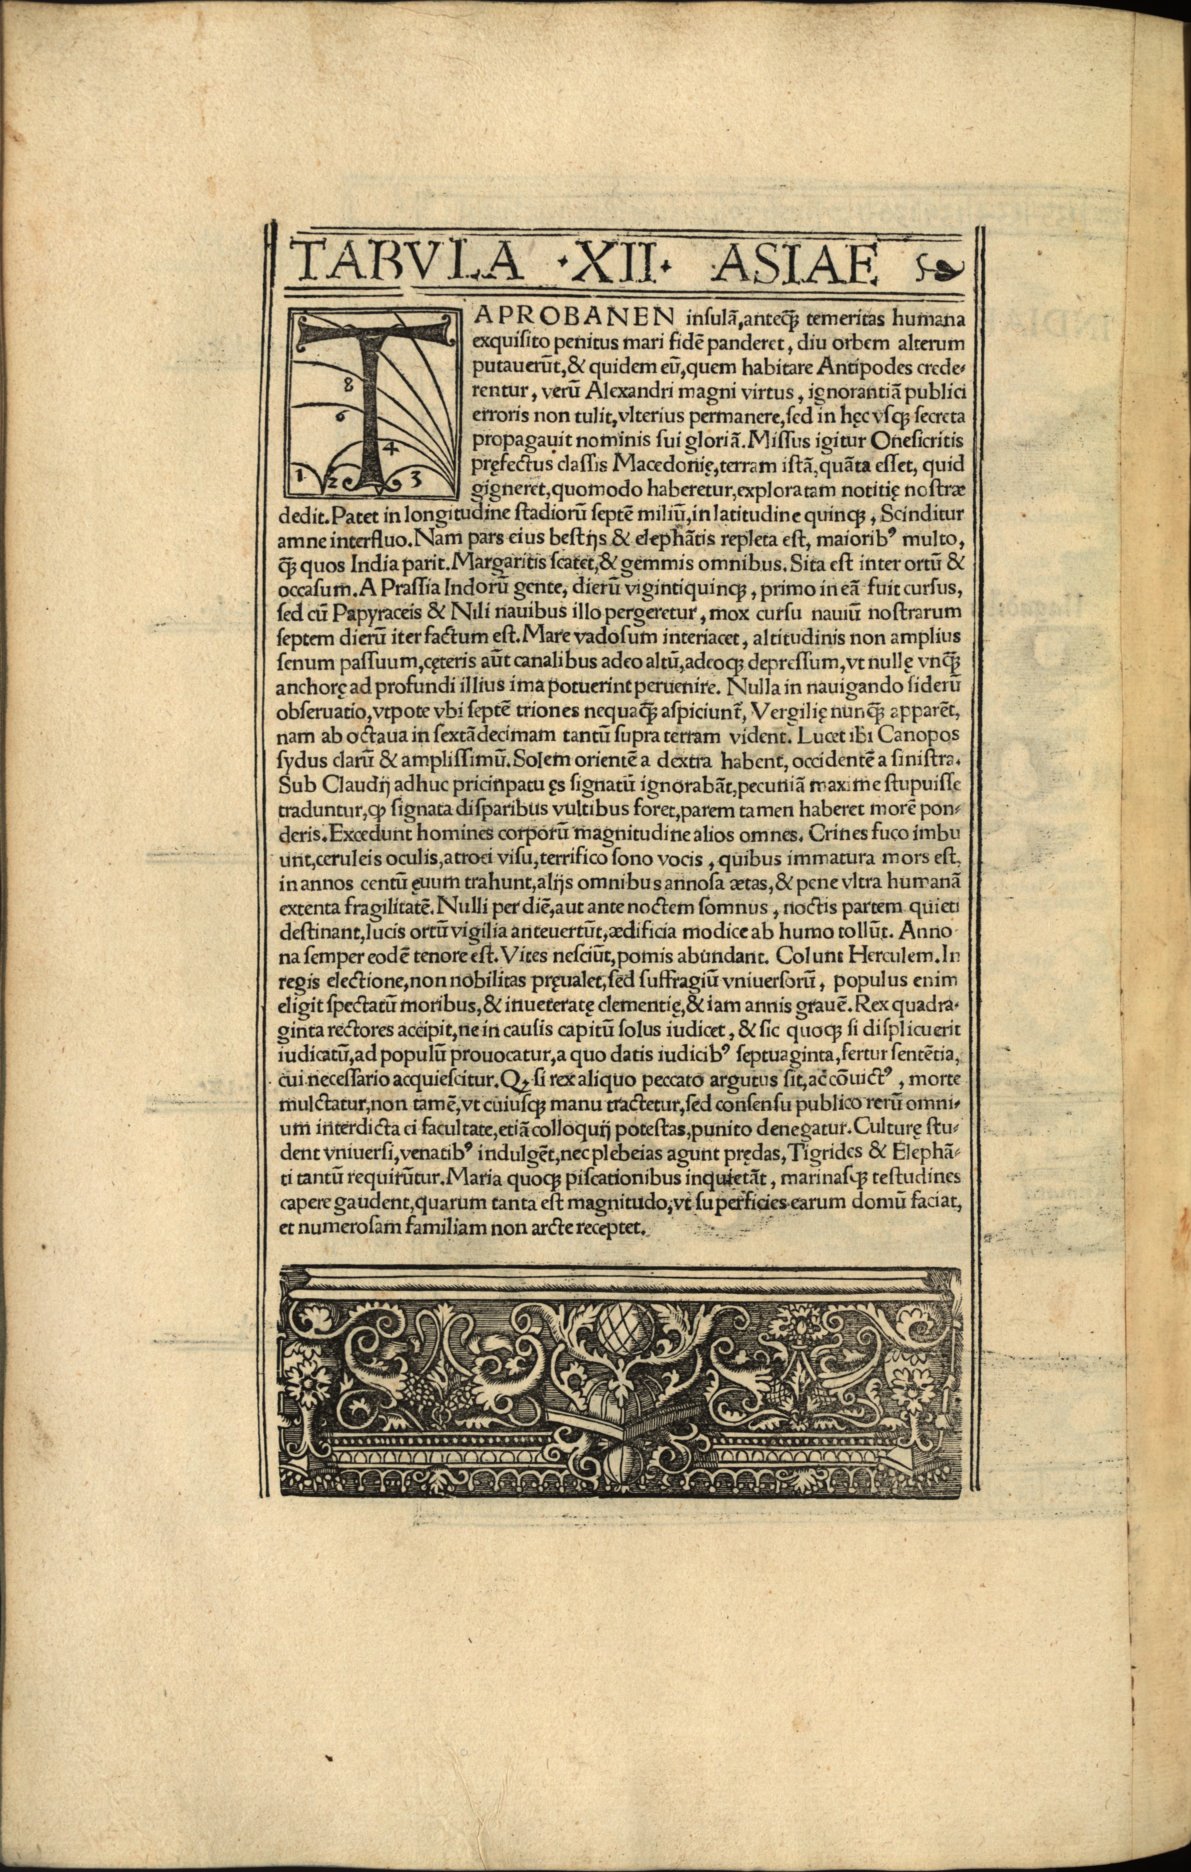 TABVLA ·XII· ASIAE
TAPROBANEN insulã,anteꝗ̃ temeritas humana
exquisito penitus mari fidẽ panderet, diu orbem alterum
putauerũt,& quidem eũ,quem habitare Antipodes crede-
rentur, verũ Alexandri magni virtus, ignorantiã publici
erroris non tulit,vlterius permanere,sed in hęc vsqꝫ secreta
propagauit nominis sui gloriã. Missus igitur Onesicritis
pręfectus classis Macedonię,terram istã,quãta esset, quid
gigneret,quomodo haberetur,exploratam notitię nostræ
dedit. Patet in longitudine stadiorũ septẽ miliũ,in latitudine quinqꝫ, Scinditur
amne interfluo. Nam pars eius bestijs & elephãtis repleta est, maioribꝰ multo,
ꝗ̃ quos India parit. Margaritis scatet,& gemmis omnibus. Sita est inter ortũ &
occasum. A Prassia Indorũ gente, dierũ vigintiquinqꝫ, primo in eã fuit cursus,
sed cũ Papyraceis & Nili nauibus illo pergeretur, mox cursu nauiũ nostrarum
septem dierũ iter factum est. Mare vadosum interiacet, altitudinis non amplius
senum passuum,cęteris aũt canalibus adeo altũ,adeoqꝫ depressum,vt nullę vnꝗ̃
anchorę ad profundi illius ima potuerint peruenire. Nulla in nauigando siderũ
obseruatio,vtpote vbi septẽ triones nequaꝗ̃ aspiciunt̃, Vergilię nunꝗ̃ apparẽt,
nam ab octaua in sextãdecimam tantũ supra terram vident. Lucet ibi Canopos
sydus clarũ & amplissimũ. Solem orientẽ a dextra habent, occidentẽ a sinistra.
Sub Claudij adhuc pricinpatu ęs signatũ ignorabãt,pecuniã maxime stupuisse
traduntur,ꝙ signata disparibus vultibus foret,parem tamen haberet morẽ pon-
deris. Excedunt homines corporũ magnitudine alios omnes. Crines fuco imbu
unt,ceruleis oculis,atroci visu,terrifico sono vocis, quibus immatura mors est,
in annos centũ ęuum trahunt,alijs omnibus annosa ætas,& pene vltra humanã
extenta fragilitatẽ. Nulli per diẽ,aut ante noctem somnus, noctis partem quieti
destinant,lucis ortũ vigilia anteuertũt,ædificia modice ab humo tollũt. Anno
na semper eodẽ tenore est. Vites nesciũt,pomis abundant. Colunt Herculem. In
regis electione,non nobilitas pręualet,sed suffragiũ vniuersorũ, populus enim
eligit spectatũ moribus,& inueteratę clementię,& iam annis grauẽ. Rex quadra-
ginta rectores accipit,ne in causis capitũ solus iudicet, & sic quoqꝫ si displicuerit
iudicatũ,ad populũ prouocatur,a quo datis iudicibꝰ septuaginta,fertur sentẽtia,
cui necessario acquiescitur. Qꝫ si rex aliquo peccato argutus sit,ac cõuictꝰ, morte
mulctatur,non tamẽ,vt cuiusqꝫ manu tractetur,sed consensu publico rerũ omni-
um interdicta ei facultate,etiã colloquij potestas,punito denegatur. Culturę stu-
dent vniuersi,venatibꝰ indulgẽt,nec plebeias agunt prędas, Tigrides & Elephã-
ti tantũ requirũtur. Maria quoqꝫ piscationibus inquietãt, marinasqꝫ testudines
capere gaudent,quarum tanta est magnitudo,vt superficies earum domũ faciat,
et numerosam familiam non arcte receptet.
8
6
4
1 2 3